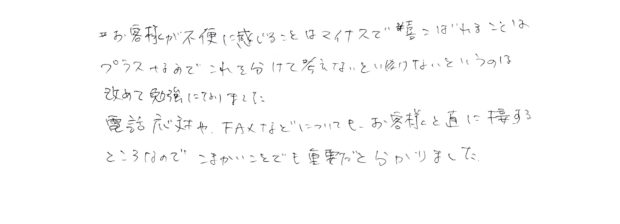 お客様が不便に感じることはマイナスで喜こばれることは
プラスなのでこれを分けて考えないといけないというのは
改めて勉強になりました
電話応対や、FAXなどについても、お客様と直に接する
ところなので こまかいことでも重要だと分かりました